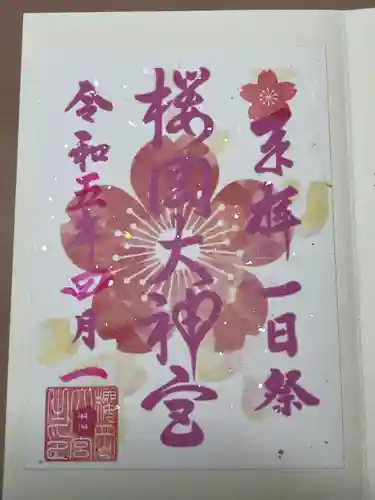 奉拝 一日祭
櫻國大神宮
令和五年四月一